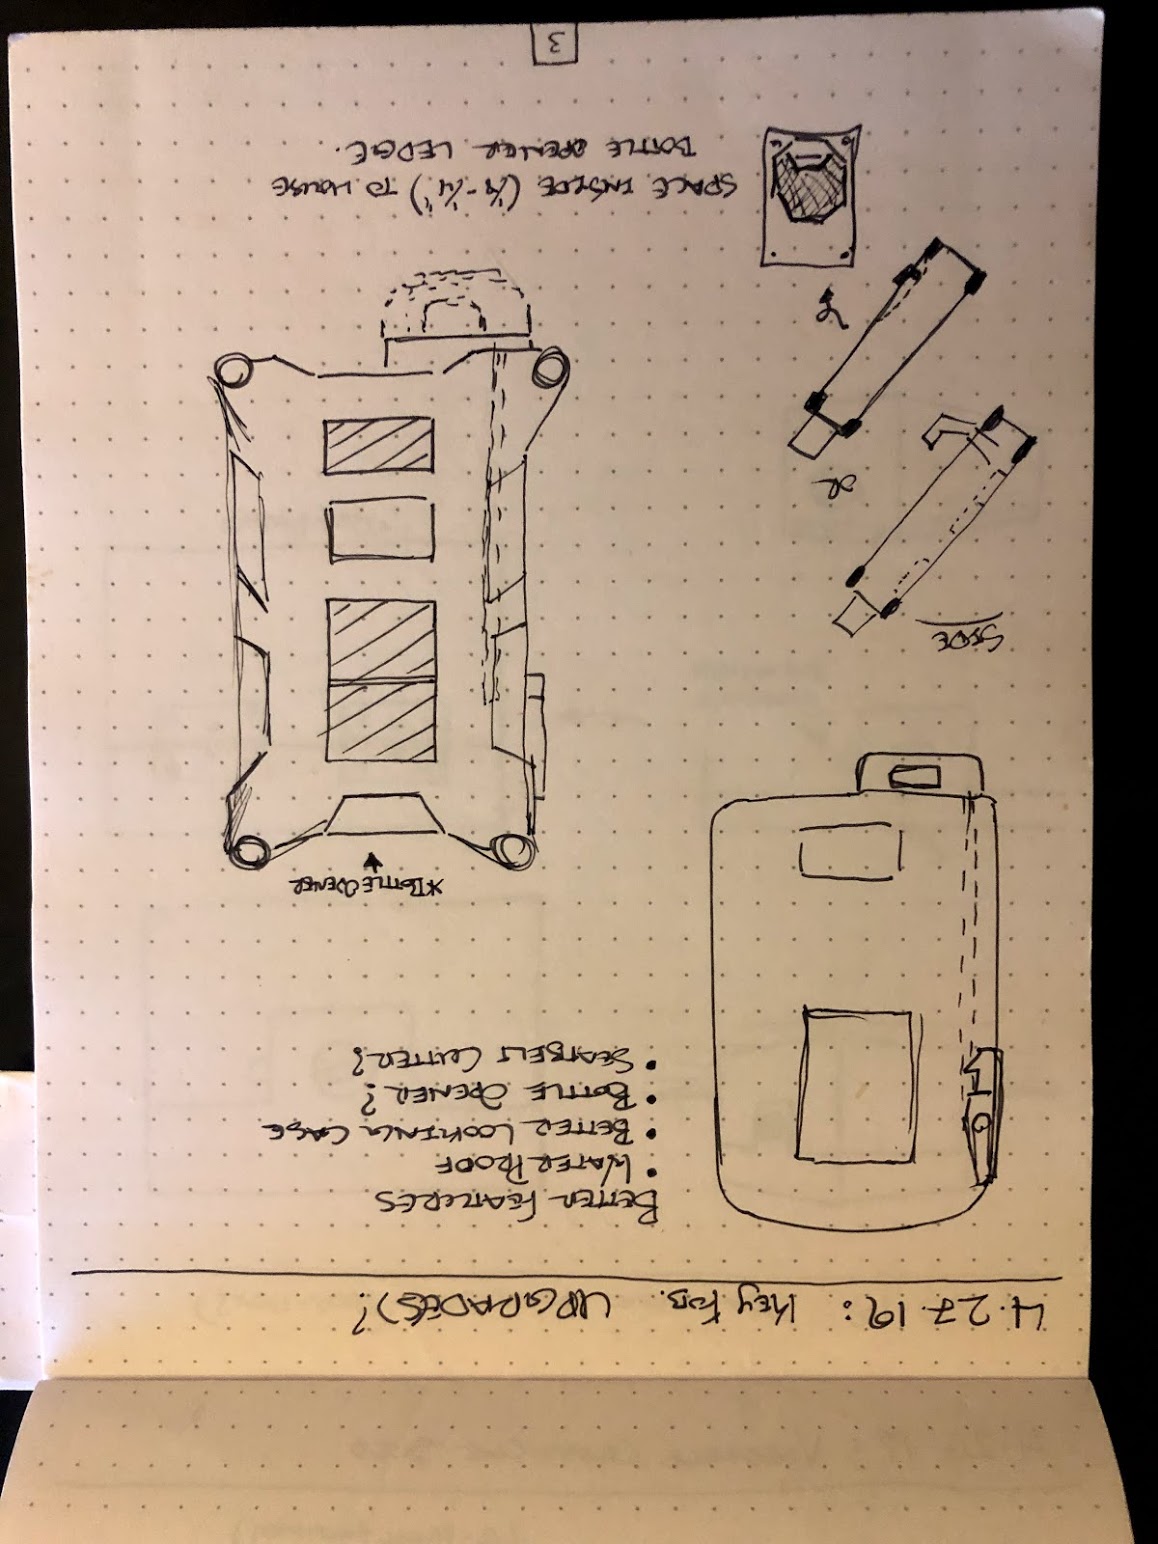 4.27.19: Key Fob. UPGRADE(S)?
BETTER FEATURES
• WATERPROOF
• BETTER LOOKING CASE
• BOTTLE OPENER?
• SEATBELT CUTTER?
*BOTTLE OPENER
SIDE
OR
SPACE INSIDE (⅛-¼") TO HOUSE
BOTTLE OPENER LEDGE.
3